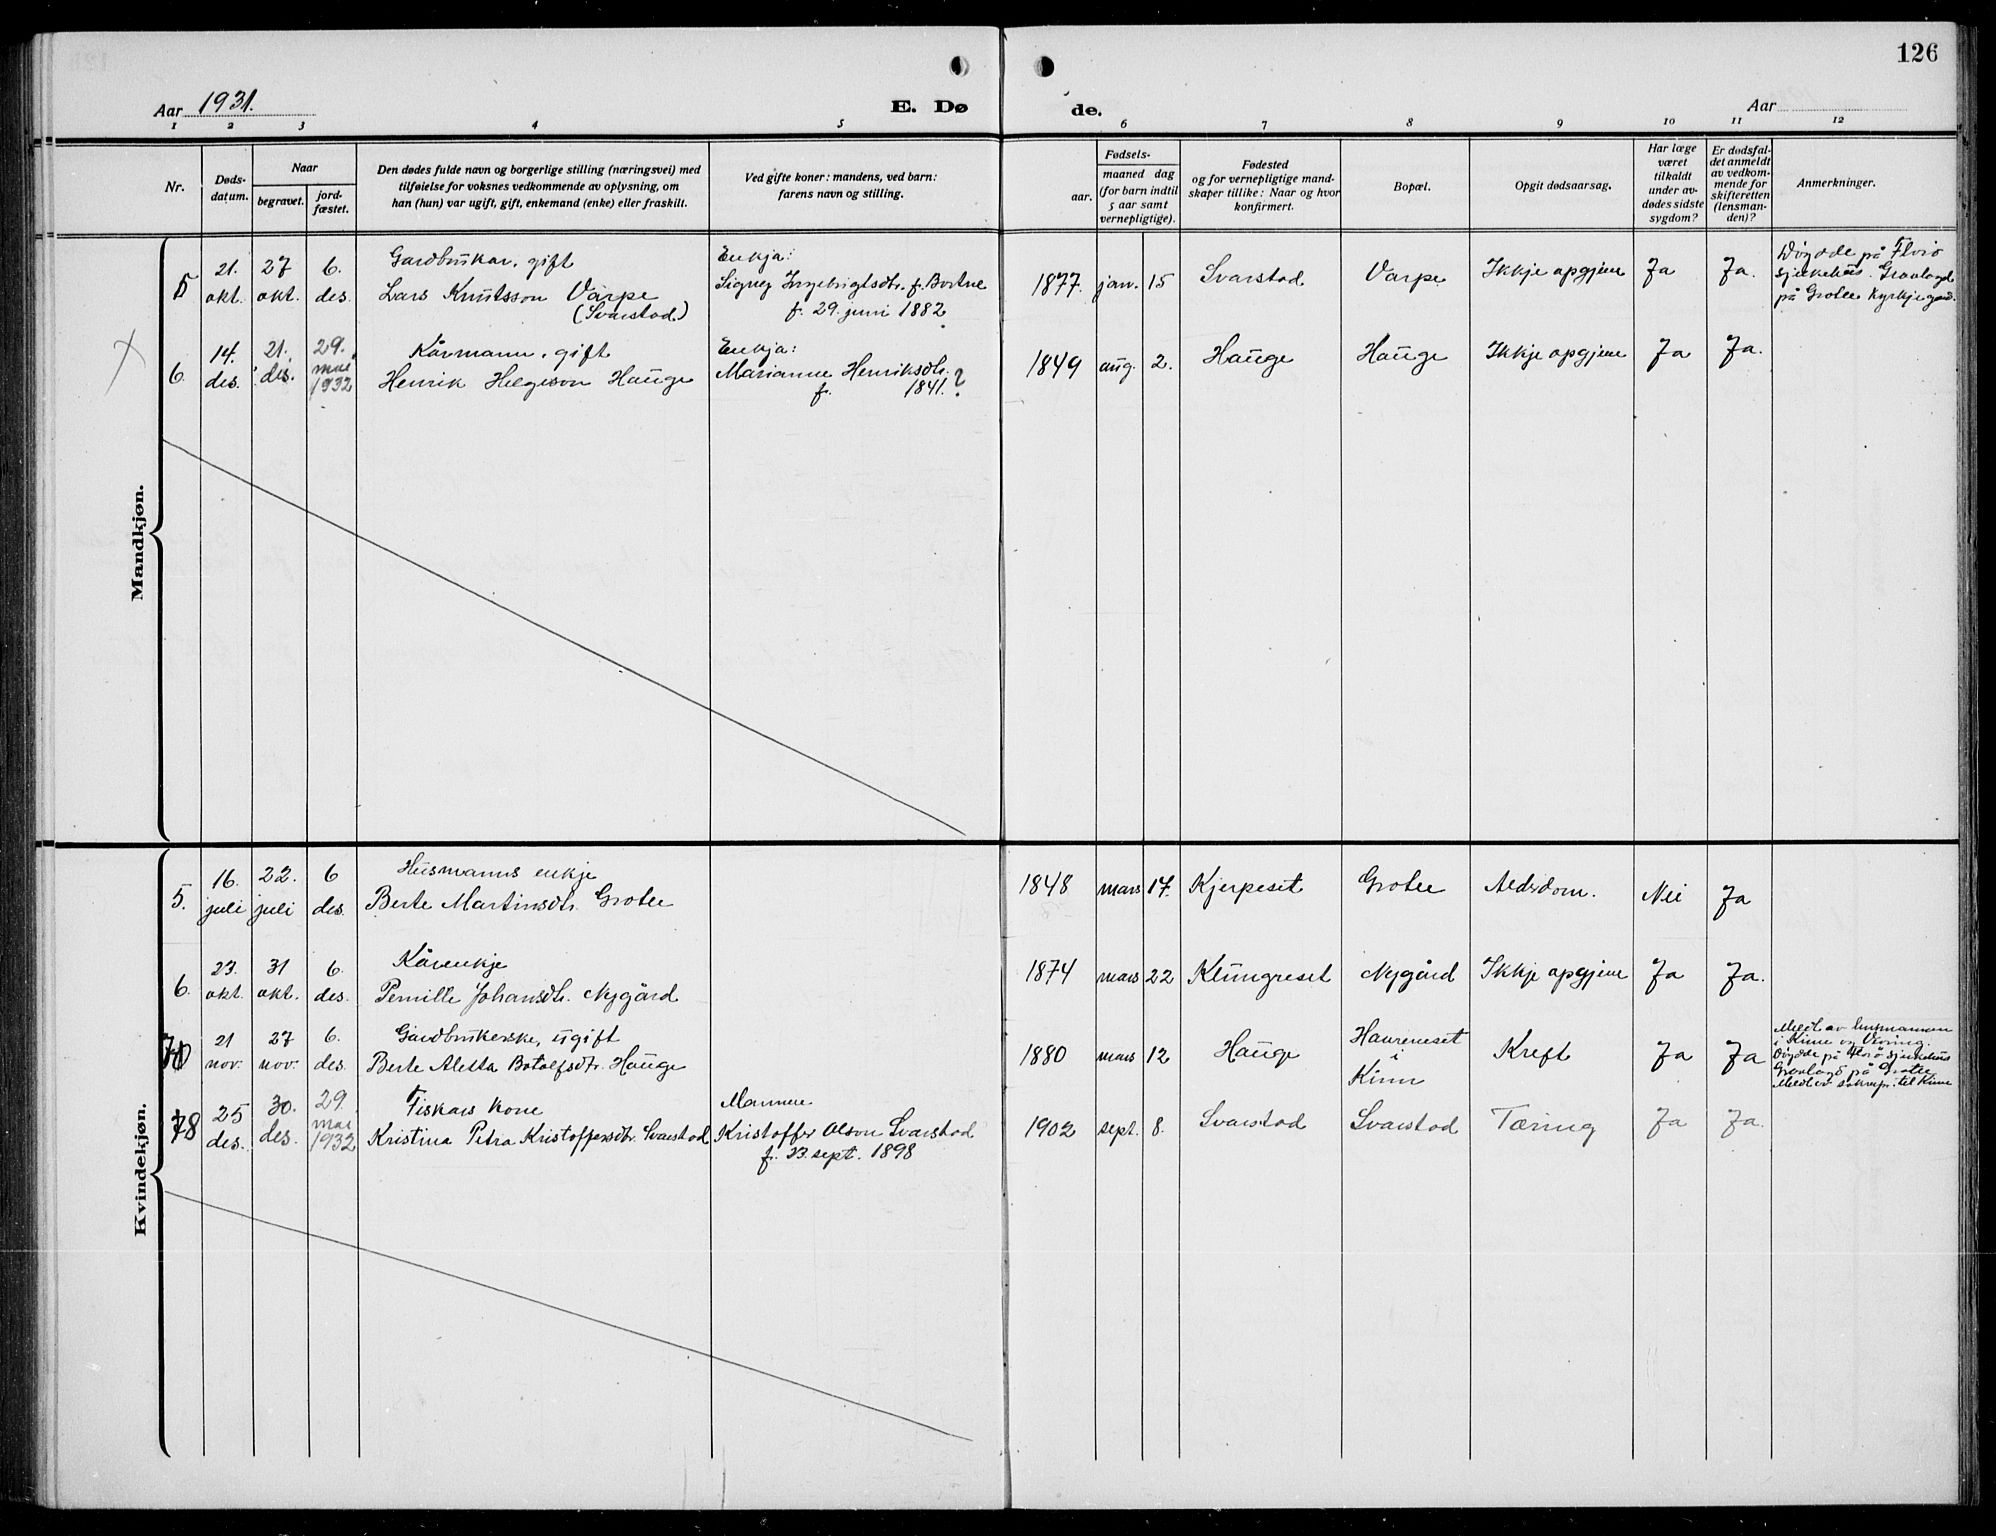 126
Aar 1931.
E. Dø de.
Aar
1 2 3 4 5 6 7 8 9 10 11 12
Nr.
Døds-
datum.
Naar
begravet.
jord-
fæstet.
Den dødes fulde navn og borgerlige stilling (næringsvei) med
tilføielse for voksnes vedkommende av oplysning, om
han (hun) var ugift, gift, enkemand (enke) eller fraskilt.
Ved gifte koner: mandens, ved barn:
farens navn og stilling.
Fødsels-
aar.
maaned dag
(for barn indtil
5 aar samt
vernepligtige).
Fødested
og for vernepligtige mand-
skaper tillike: Naar og hvor
konfirmert.
Bopæl.
Opgit dødsaarsag.
Har læge
været
tilkaldt
under av-
dødes sidste
sygdom?
Er dødsfal-
det anmeldt
av vedkom-
mende for
skifteretten
(lensman-
den)?
Anmerkninger.
Mandkjøn.
5 21. okt. 27 okt. 6. des. Gardbrukar, gift
Lars Knutsson Varpe
(Svarstad)
Enkja:
Signey Ingebrigtsdtr. f. Bortne
f. 29. juni 1882
1877. jan. 15 Svarstad Varpe Ikkje opgjeve Ja Ja.
Döydde på Florö
sjukehus. Gravlagd
på Grotle kyrkjegard.
6. 14. des. 21. des. 29. mai 1932 Kårmann, gift
Henrik Helgeson Hauge
Enkja:
Marianne Henriksdtr.
f. 1841.?
1849 aug. 2. Hauge Hauge Ikkje opgjeve Ja Ja.
Kvindekjøn.
5. 16. juli 22. juli 6 des. Husmanns enkje
Berte Martinsdtr. Grotle
1848 mars 17. Kjerpeset Grotle Aldsdom. Nei Ja
6. 23. okt. 31 okt. 6. des. Kårenkje
Pernille Johansdtr. Nygård
1874 mars 22 Klungreset Nygård Ikkje opgjeve Ja Ja.
7 21 nov. 27 nov. 6. des. Gardbrukerske, ugift
Berte Aletta Botolfsdtr. Hauge
1880 mars 12 Hauge
i
Kinn
Kreft Ja Ja
Meld. av lensmannen
i Kinn
Döydde på Florö sjukehus
Gravlagd på Grotle
til Kinn
8 25 des. 30. des. 29. mai 1932 Fiskars kone
Kristina Petra Kristoffersdtr. Svarstad
Mannen
Kristoffer Olson Svarstad
f. 23. sept. 1898
1902 sept. 8. Svarstad Svarstad Tæring Ja Ja.